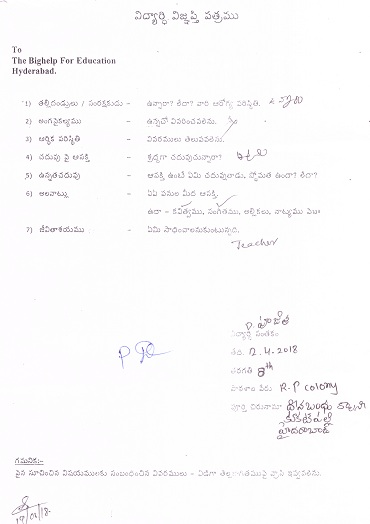 విద్యార్థి విజ్ఞప్తి పత్రము
To
The Bighelp For Education
Hyderabad.
1) తల్లిదండ్రులు / సంరక్షకుడు - ఉన్నారా? లేదా? వారి ఆరోగ్య పరిస్థితి.
2) అంగవైకల్యము - ఉన్నచో వివరించవలెను.
3) ఆర్థిక పరిస్థితి - వివరములు తెలుపవలెను.
4) చదువు పై ఆసక్తి - శ్రద్ధగా చదువుచున్నారా?
5) ఉన్నతచదువు - ఆసక్తి ఉంటే ఏమి చదువుతాడు. స్తోమత ఉందా? లేదా?
6) అలవాట్లు - ఏఏ పనుల మీద ఆసక్తి.
ఉదా - కవిత్వము, సంగీతము, అల్లికలు, నాట్యము
7) జీవితాశయము - ఏమి సాధించాలనుకుంటున్నది.
Teacher
P. పూజిత
విద్యార్థి సంతకం
తేది. 2.4.2018
తరగతి 8th
పాఠశాల పేరు R.P colony
పూర్తి చిరునామా దీనబంధు కాలనీ
కుకట్‌పల్లి
హైదరాబాద్
గమనిక:-
పైన సూచించిన విషయములకు సంబంధించిన వివరములు - విడిగా తెల్లకాగితముపై వ్రాసి ఇవ్వవలెను.